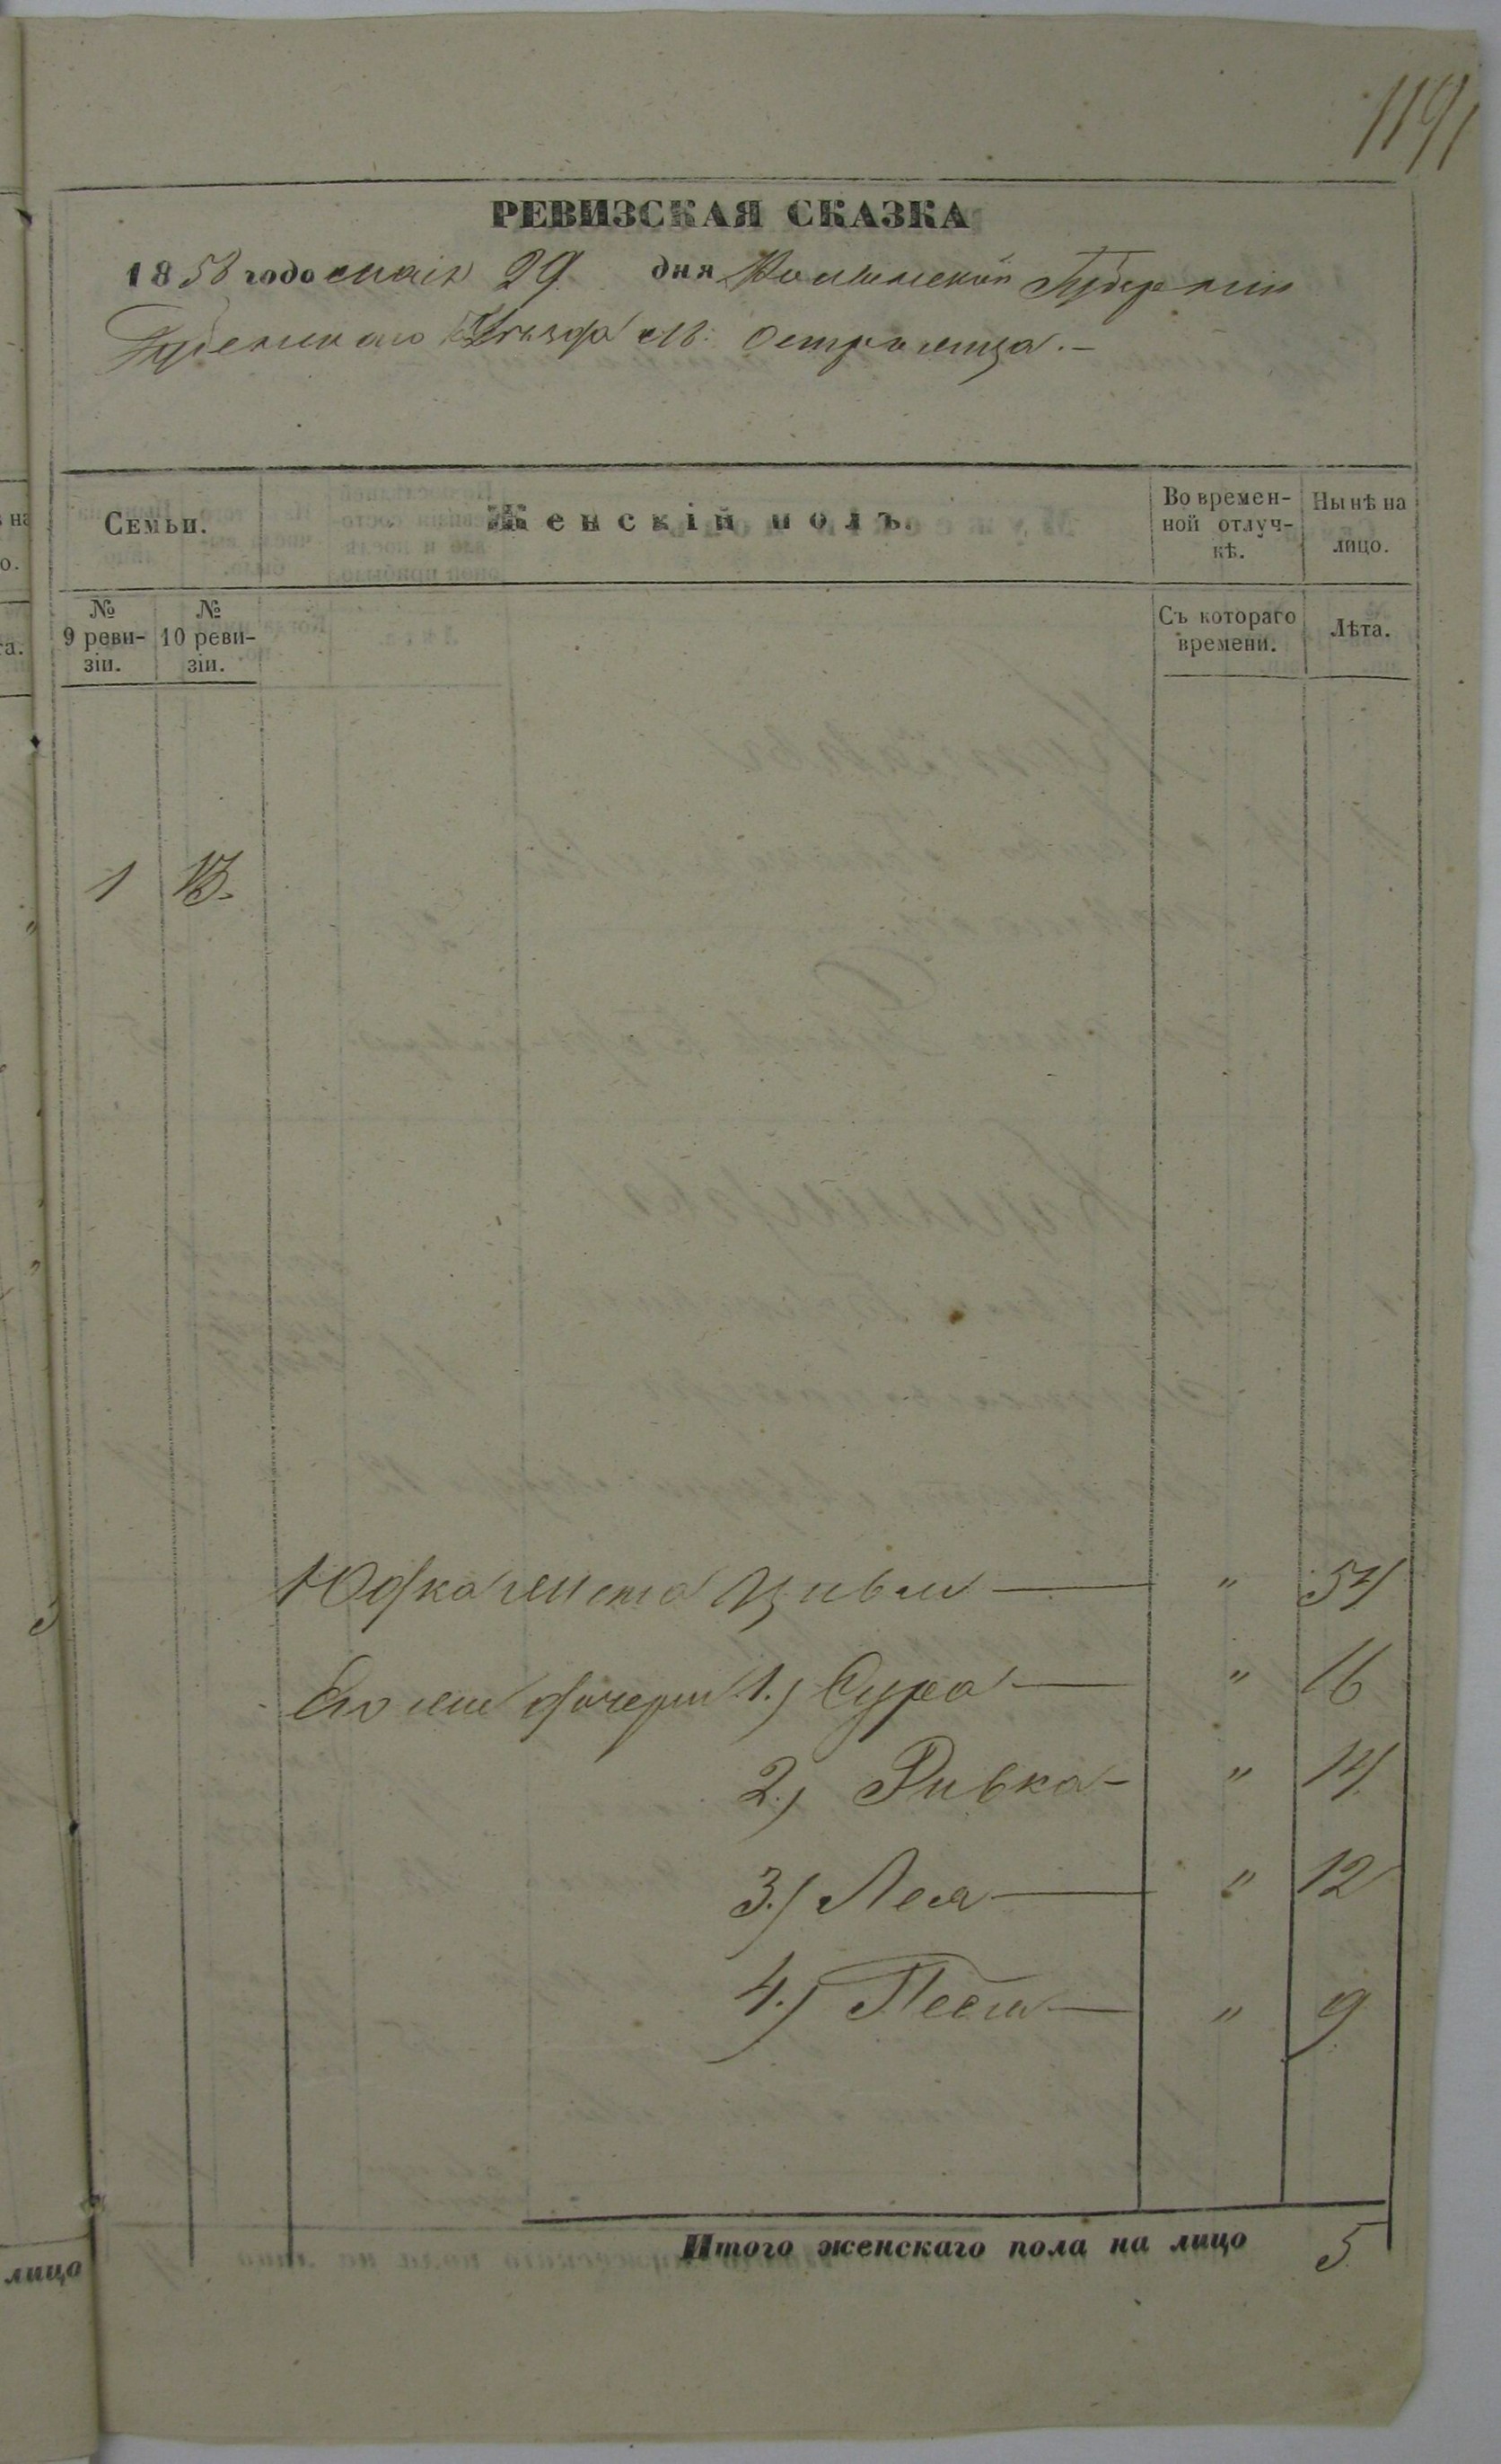 1191
РЕВИЗСКАЯ СКАЗКА
1858 года маія 29 дня Волынской Губерніи
Дубенскаго Уѣзда м. Остражица.-
Семьи.
Женскій полъ.
Во времен-
ной отлуч-
кѣ.
Нынѣ на
лицо.
№
9 реви-
зіи.
№
10 реви-
зіи.
Съ котораго
времени.
Лѣта.
1 13.
Юдка жена Цивья — " 54
Его же дочери 1.) Сура — " 16
2.) Ривка - " 14
3.) Лея — " 12
4.) Песя — " 9
Итого женскаго пола на лицо 5
лицо